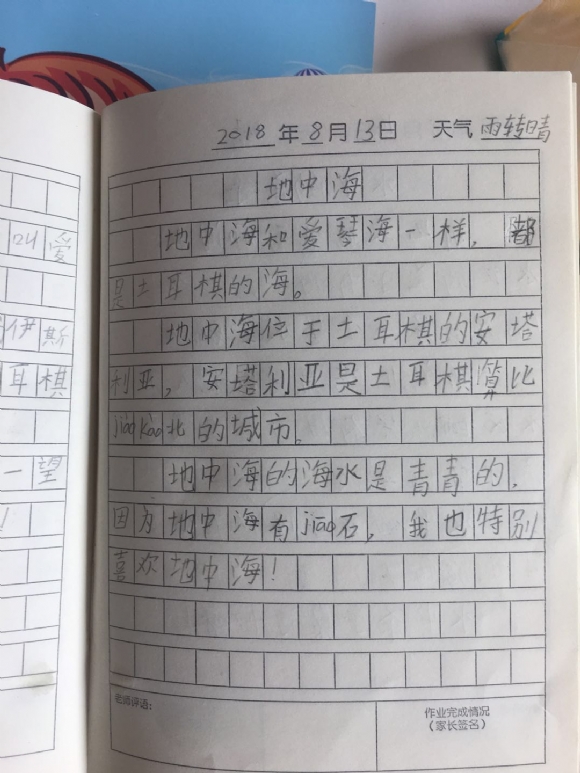 2018 年 8 月 13 日 天气 雨转晴
地中海
地中海和爱琴海一样，都
是土耳棋的海。
地中海位于土耳棋的安塔
利亚，安塔利亚是土耳棋算比
jiào kào北的城市。
地中海的海水是青青的，
因为地中海有jiāo石，我也特别
喜欢地中海！
老师评语：
作业完成情况
（家长签名）
爱
伊斯
耳棋
一望
！